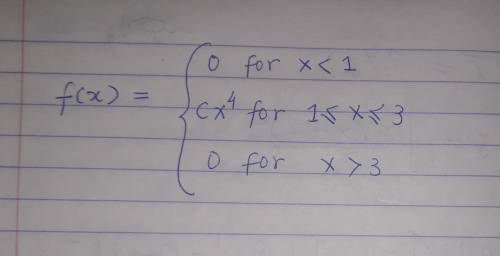 0 for x < 1
f(x) = { cx⁴ for 1 ≤ x ≤ 3
0 for x > 3